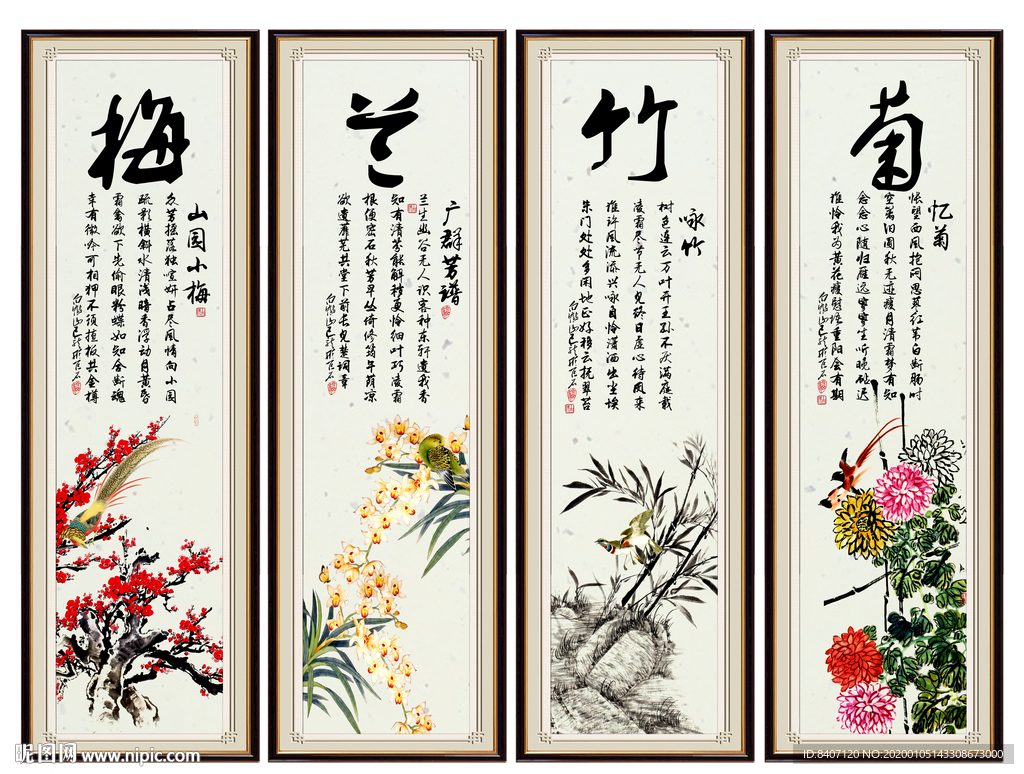 梅
山园小梅
众芳摇落独喧妍占尽风情向小园
疏影横斜水清浅暗香浮动月黄昏
霜禽欲下先偷眼粉蝶如知合断魂
幸有微吟可相狎不须檀板共金樽
兰
广群芳谱
兰生幽谷无人识客种东轩遗我香
知有清芬能解秽更怜细叶巧凌霜
根便密石秋芳早丛倚修筠午荫凉
欲遣蘼芜共堂下前长见楚词章
竹
咏竹
树色连云万叶开王孙不厌满庭栽
凌霜尽节无人见终日虚心待凤来
谁许风流添兴咏自怜潇洒出尘埃
朱门处处多闲地正好移云托翠苔
菊
忆菊
怅望西风抱闷思蓼红苇白断肠时
空篱旧圃秋无迹瘦月清霜梦有知
念念心随归雁远寥寥坐听晚砧迟
谁怜我为黄花瘦慰语重阳会有期
昵图网 www.nipic.com
ID:8407120 NO.20200105143308673000